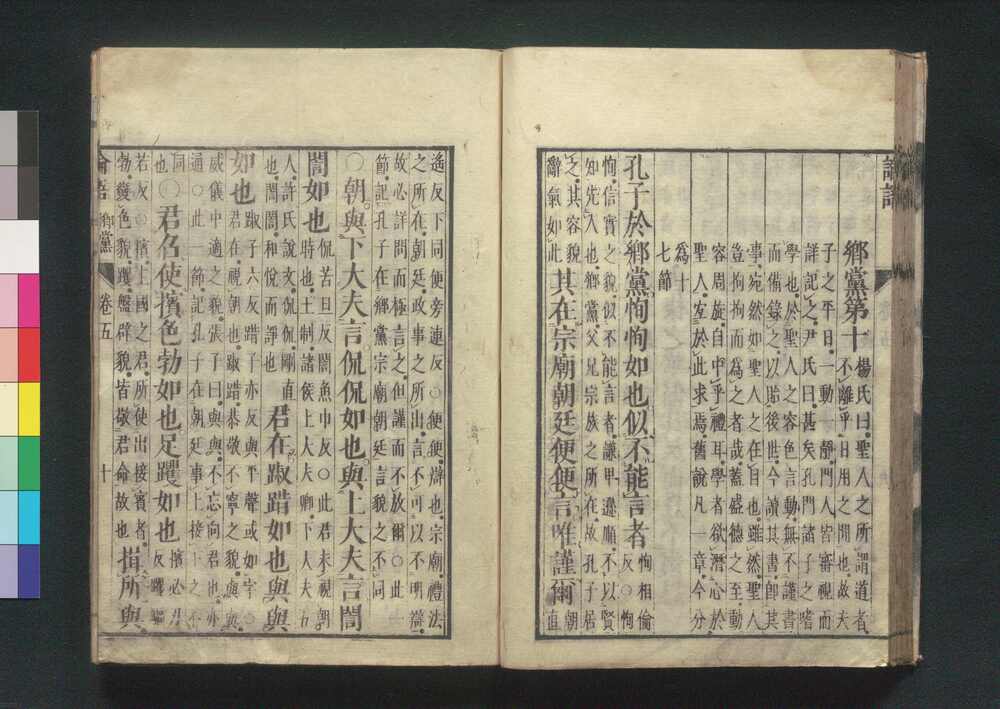 論語
鄉黨第十
楊氏曰聖人之所謂道者
不離乎日用之閒也故夫
子之平日一動一靜門人皆審視而
詳記之尹氏曰甚矣孔門諸子之嗜
學也於聖人之容色言動無不謹書
而備錄之以貽後世今讀其書即其
事宛然如聖人之在目也雖然聖人
豈拘拘而爲之者哉蓋盛德之至動
容周旋自中乎禮耳學者欲潛心於
聖人宜於此求焉舊說凡一章今分
爲十
七節
孔子於鄉黨恂恂如也似不能言者
恂相倫
反○恂
恂信實之貌似不能言者謙卑遜順不以賢
知先人也鄉黨父兄宗族之所在故孔子居
之其容貌
辭氣如此
其在宗廟朝廷便便言唯謹爾
朝
直
遙反下同便旁連反○便便辯也宗廟禮法
之所在朝廷政事之所出言不可以不明辯
故必詳問而極言之但謹而不放爾○此一
節記孔子在鄉黨宗廟朝廷言貌之不同
○朝與下大夫言侃侃如也與上大夫言誾
誾如也
侃苦旦反誾魚巾反○此君未視朝
時也王制諸侯上大夫卿下大夫五
人許氏說文侃侃剛直
也誾誾和悅而諍也
君在踧踖如也與與
如也
踧子六反踖子亦反與平聲或如字○
君在視朝也踧踖恭敬不寧之貌與與
威儀中適之貌張子曰與與不忘向君也亦
通○此一節記孔子在朝廷事上接下之不
同
也
○君召使擯色勃如也足躩如也
擯必刃
反躩驅
若反○擯主國之君所使出接賓者
勃變色貌躩盤辟貌皆敬君命故也
揖所與
論語 鄉黨 卷五 十